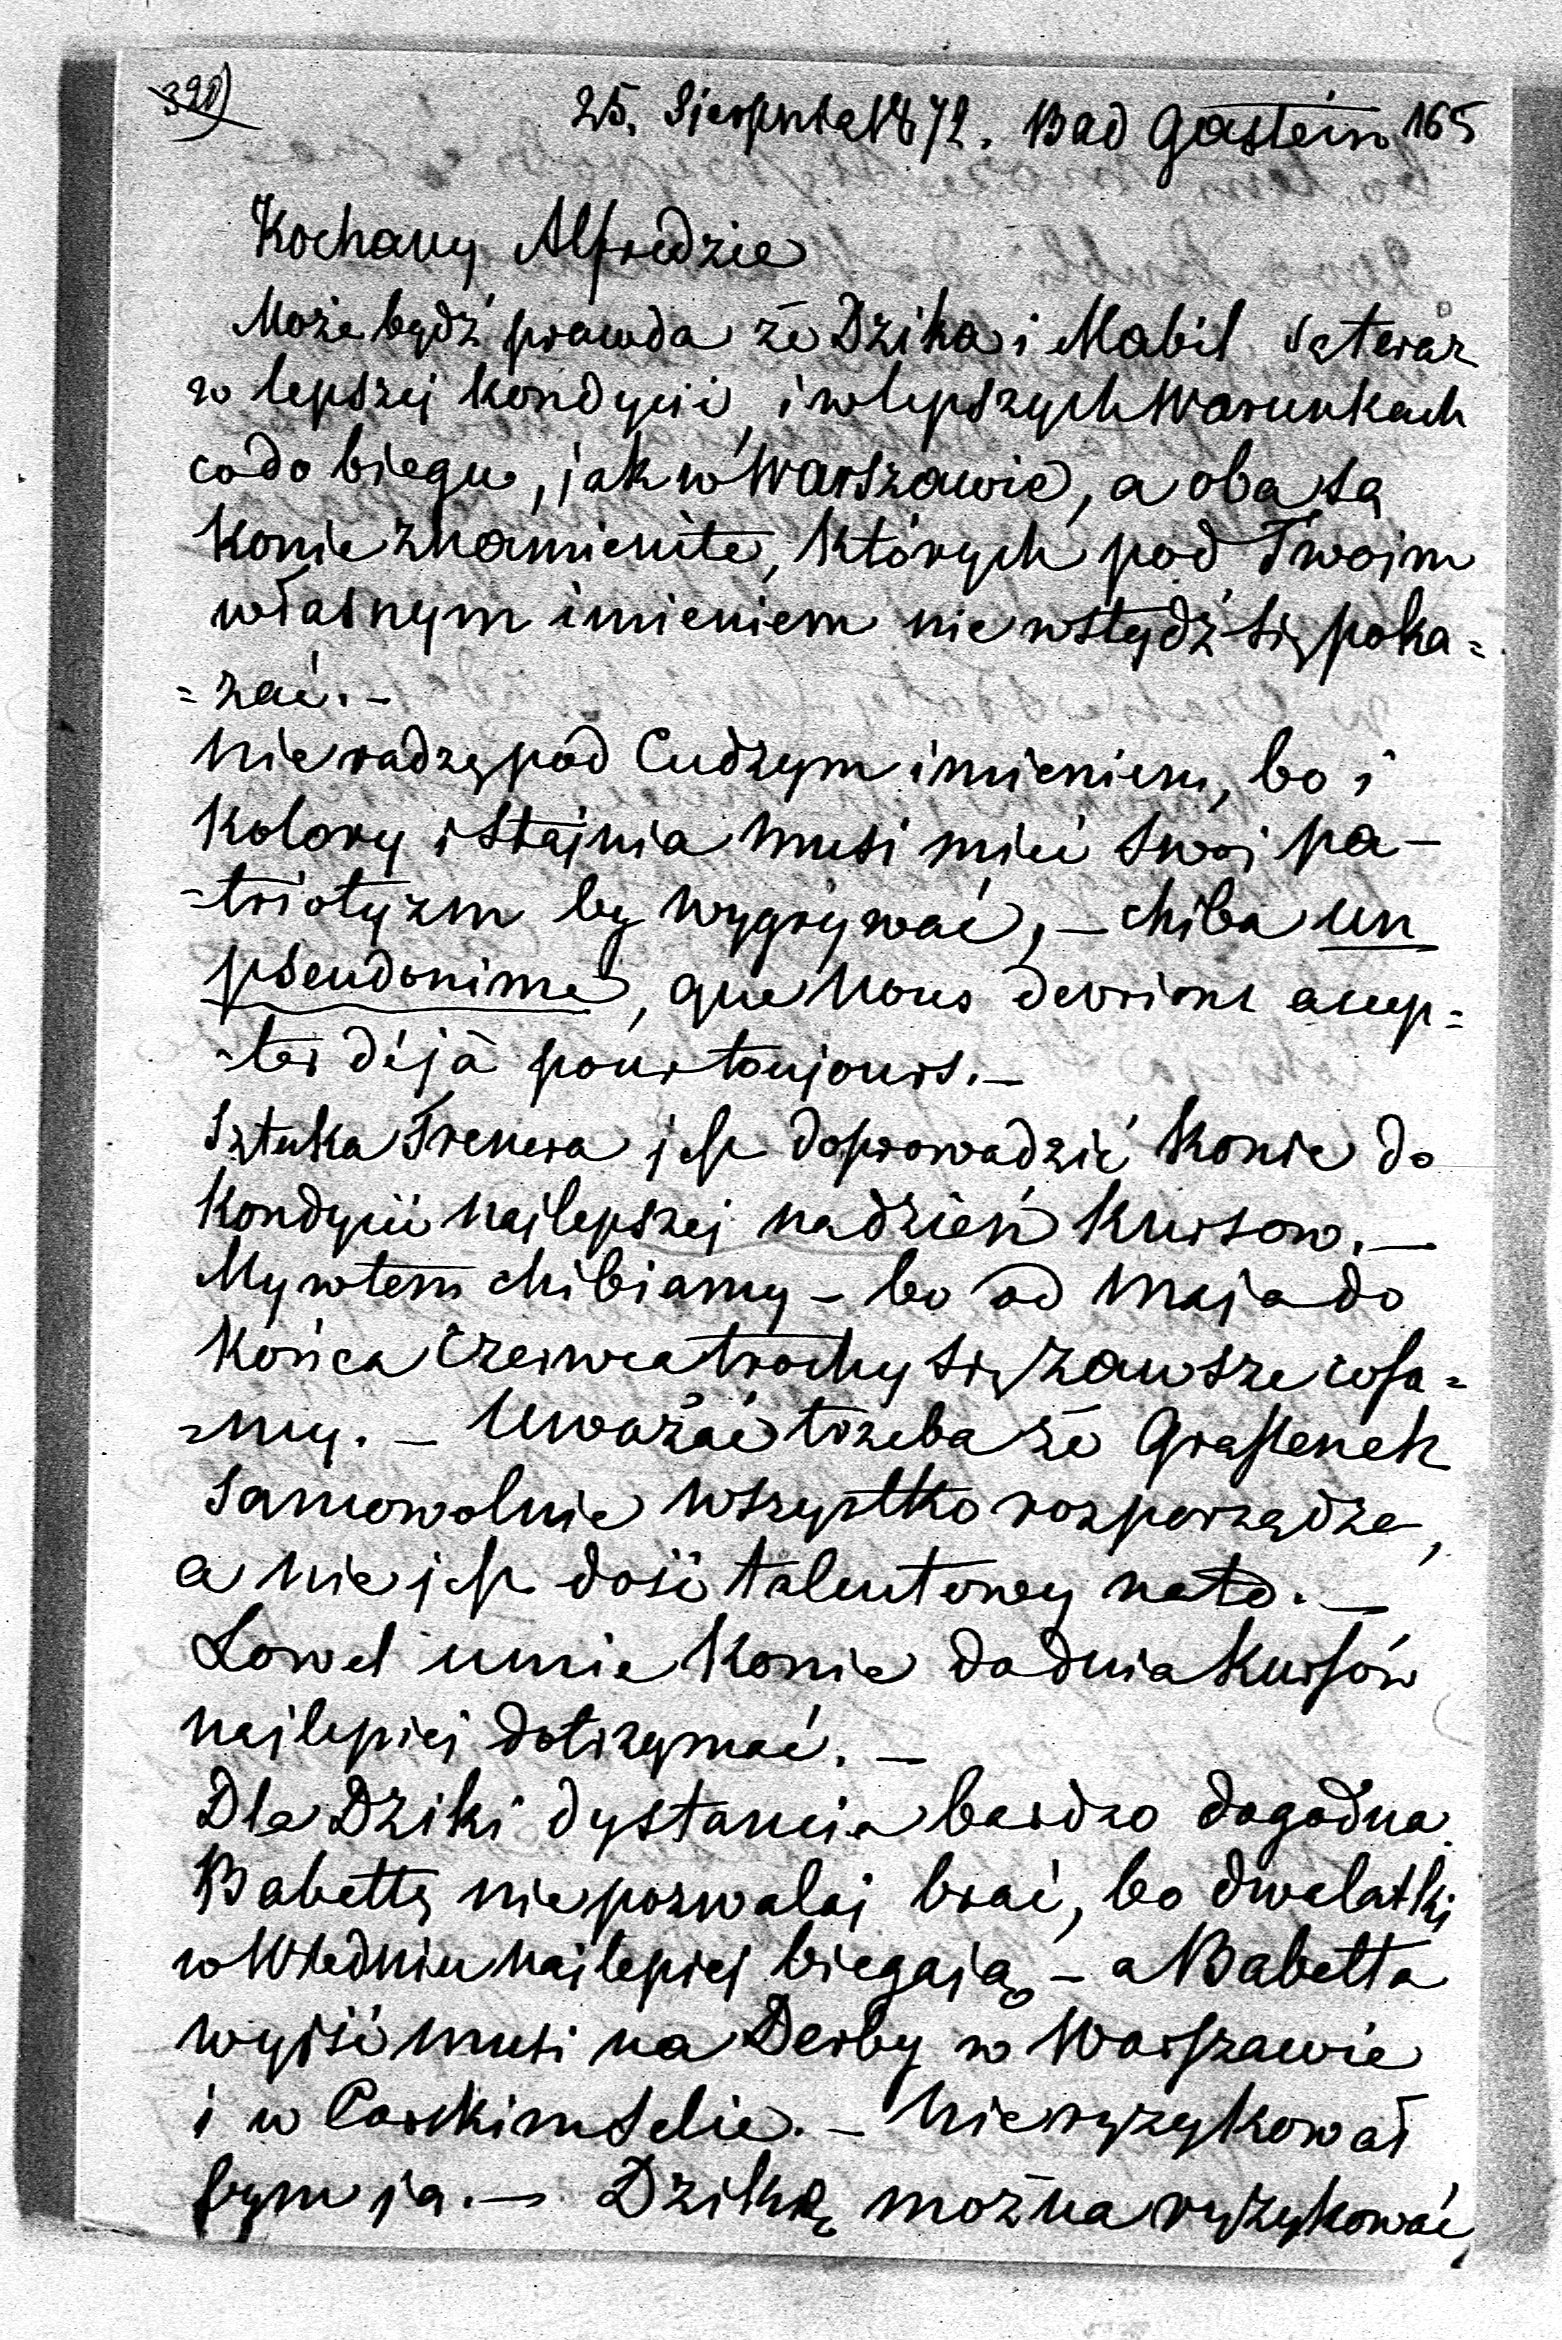 320)
25. Sierpnia 1872. Bad Gastein 165
Kochany Alfredzie
Może bydź prawda że Dzika i Mabil są teraz
w lepszej kondycii, i w lepszych warunkach
co do biegu, jak w Warszawie, a oba są
Konie znamienite, których pod Twoim
własnym imieniem nie wstydź się poka=
=zać. –
Nie radzę pod Cudzym imieniem, bo i
Kolory i Stajnia musi mieć swój pa-
-triotyzm by wygrywać, – chiba un
pseudonime, que nous devrions accep=
-ter déjà pour toujours. –
Sztuka Trenera jest doprowadzić Konie do
Kondycii najlepszej na dzień Kursow. –
My w tem chibiamy – bo od Maja do
Końca Czerwca trochy się zawsze cofa=
=my. – Uważać trzeba że Grafienek
samowolnie wszystko rozporządza,
a nie jest dość talentowy na to. –
Lowel umie Konie do dnia Kursów
najlepiej dotrzymać. –
Dla Dziki dystancia bardzo dogodna.
Babettę nie pozwalaj brać, bo dwulatki
w Wiedniu najlepiej biegają – a Babetta
wyjść musi na Derby w Warszawie
i w Carskim Selie. – Nie ryzykował
bym ja. – Dzikę można ryzykować,